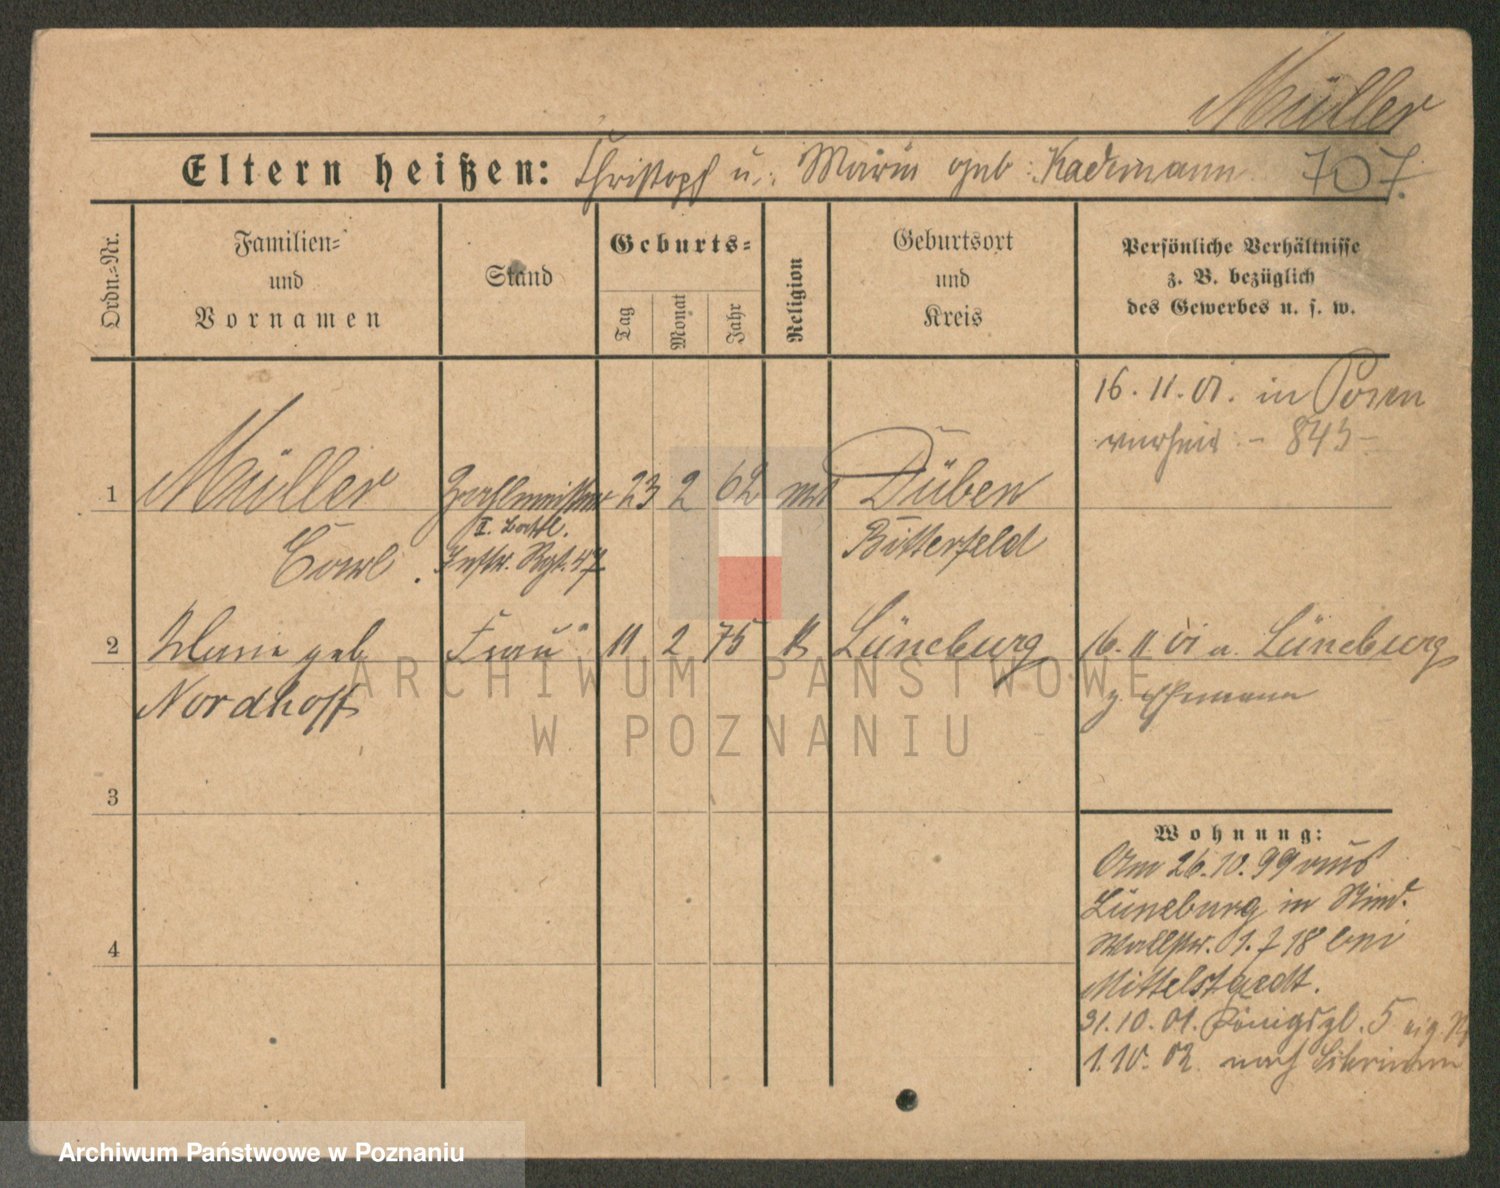 Müller
Eltern heißen: Christoph u. Marie geb. Kadmann 707.
Ordn.-Nr.
Familien-
und
Vornamen
Stand
Geburts-
Tag
Monat
Jahr
Religion
Geburtsort
und
Kreis
Persönliche Verhältnisse
z. B. bezüglich
des Gewerbes u. s. w.
16. 11. 01. in Posen
verheir. - 843 -
1 Müller Zahlmeister 23 2 62 Düben
II. Batl.
Carl. Inftr. Rgt. 47 Bitterfeld
2 geb Frau 11 2 75 Lüneburg 16. 11 01 a. Lüneburg
Nordhoff z. Ehemann
3
4
Wohnung:
Am 26.10.99 aus
Lüneburg in
Wallstr. 718 bei
Mittelstaedt.
31.10.01. Königspl. 5
1.10.02 nach
ARCHIWUM PAŃSTWOWE
W POZNANIU
Archiwum Państwowe w Poznaniu